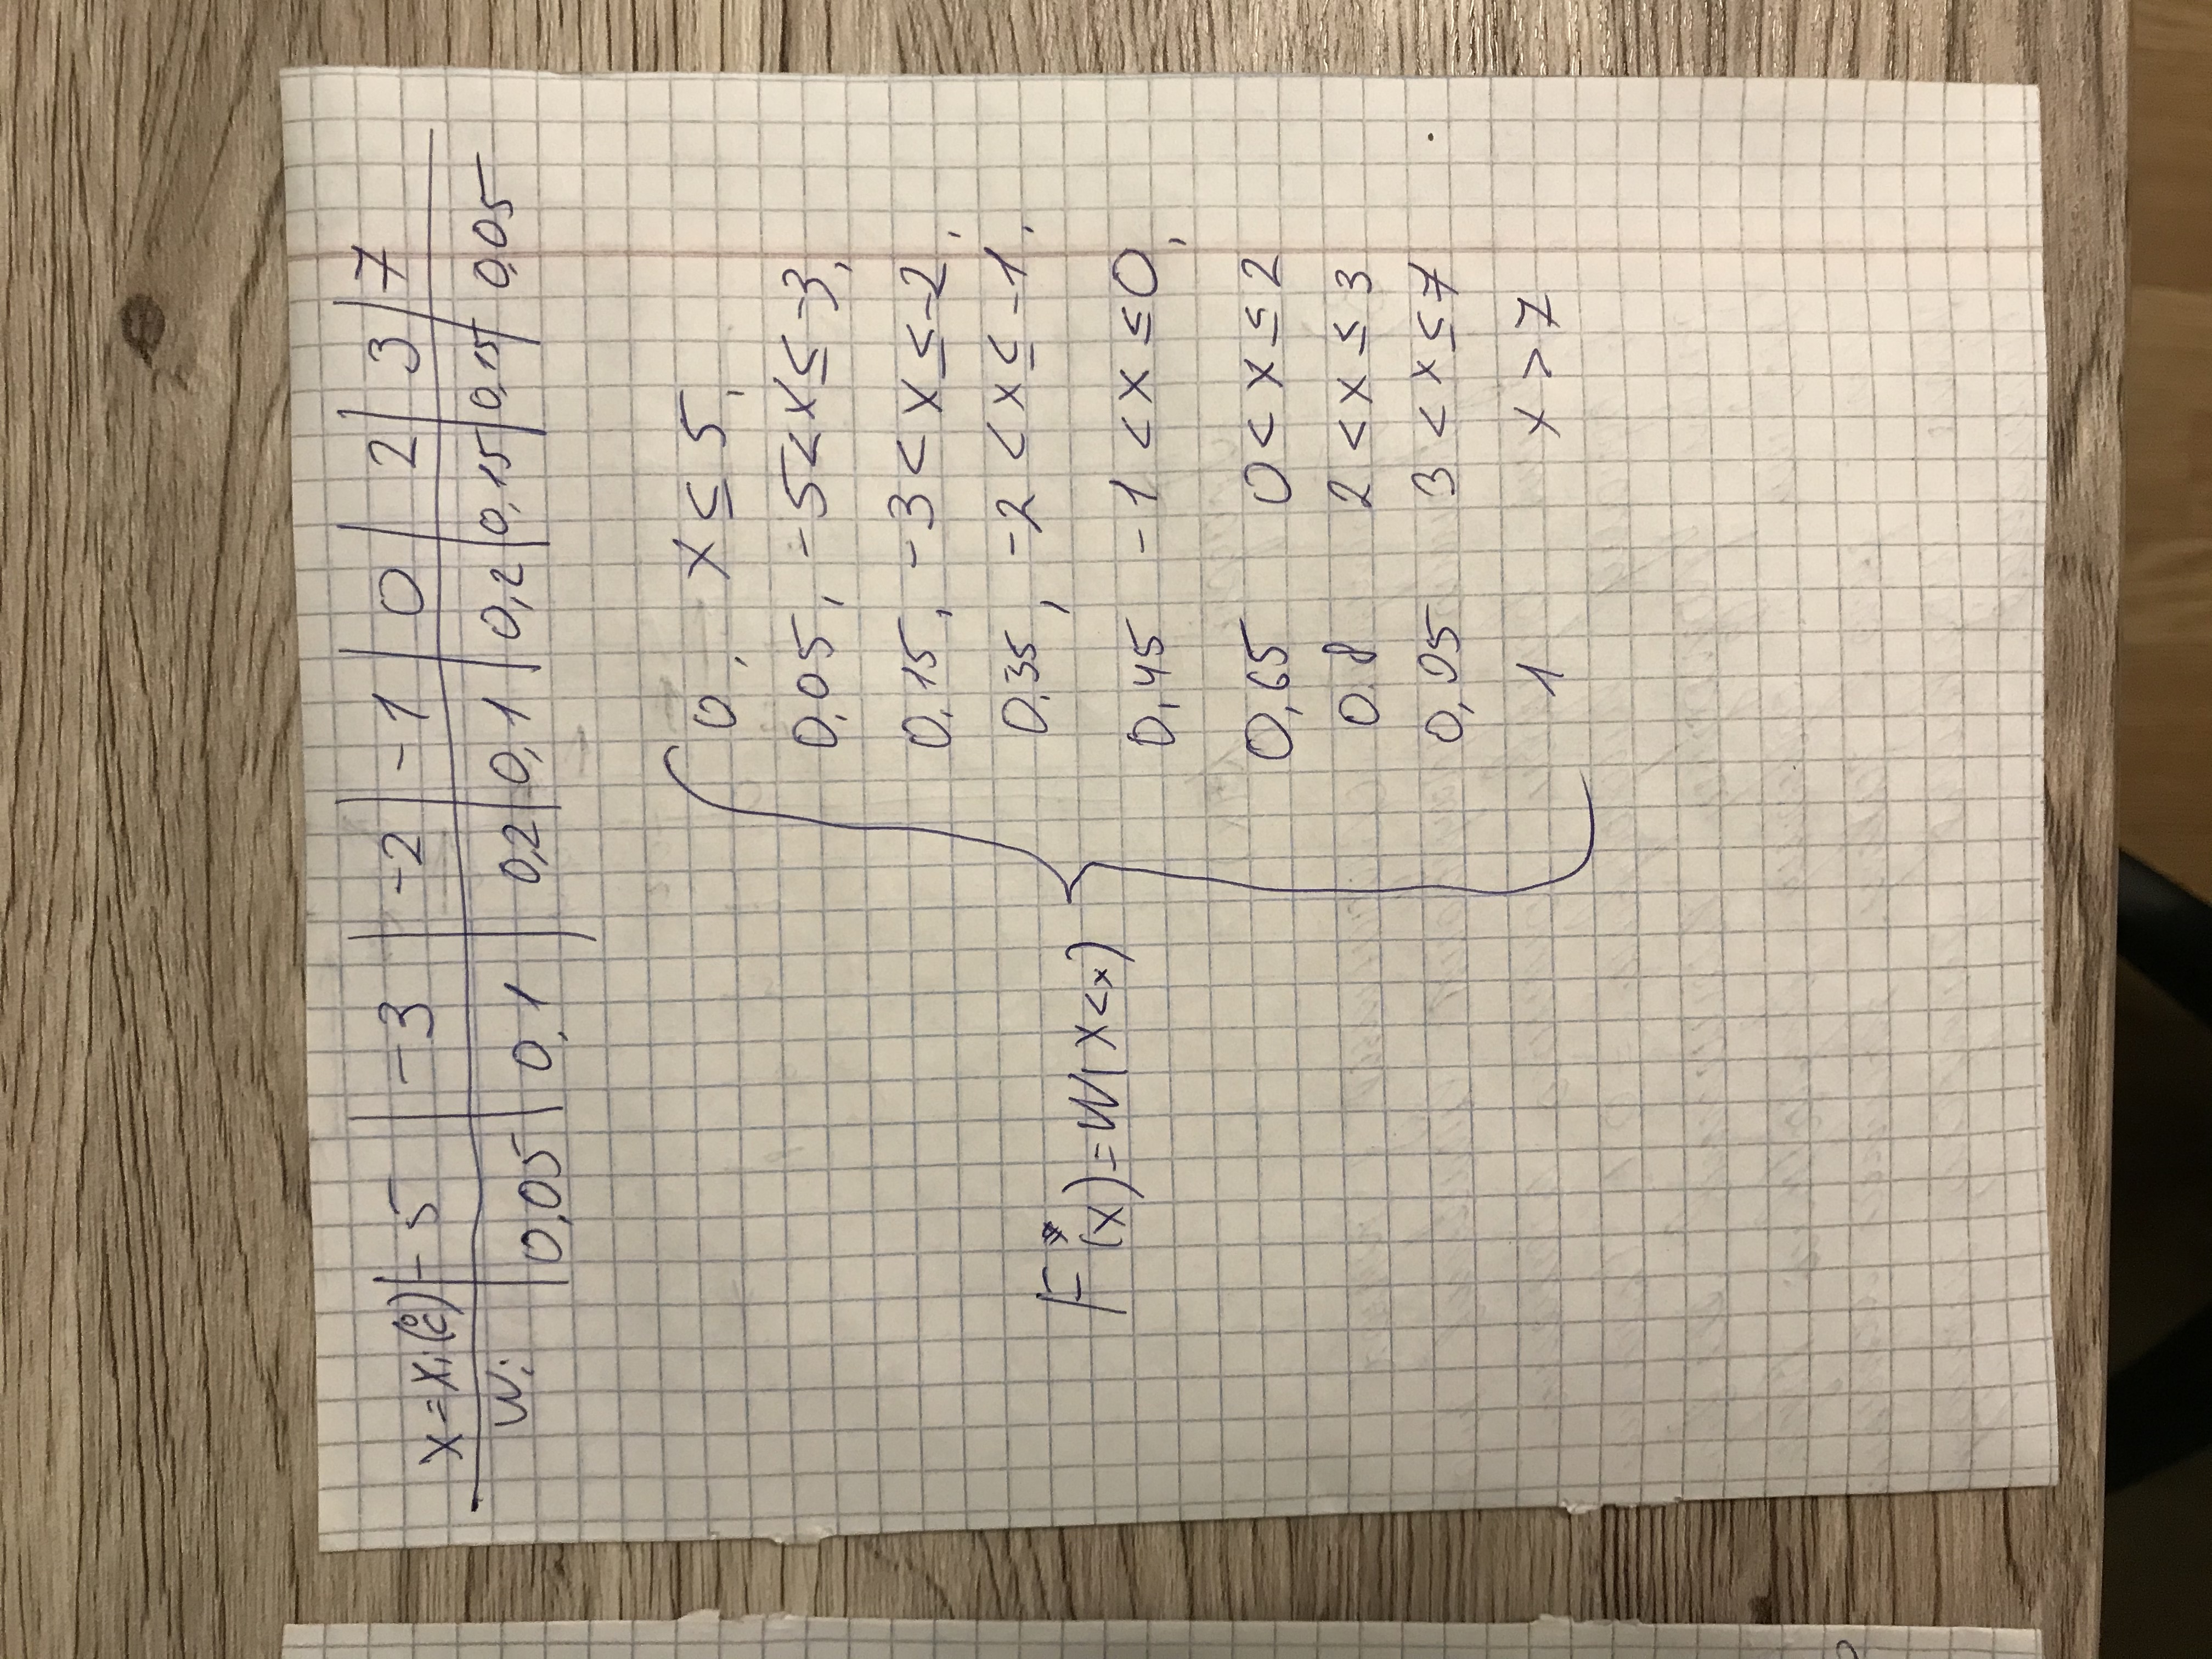 x=xi(°C) -5 -3 -2 -1 0 2 3 7
Wi 0,05 0,1 0,2 0,1 0,2 0,15 0,15 0,05
0, x ≤ 5,
0,05, -5<x≤ -3,
0,15, -3< x ≤ -2,
0,35, -2 < x ≤ -1.
F*(x)=W(X<x)
0,45 -1 < x ≤0,
0,65 0< x ≤ 2
0.8 2 < x ≤ 3
0,05 3 < x ≤ 7
1 x > 7